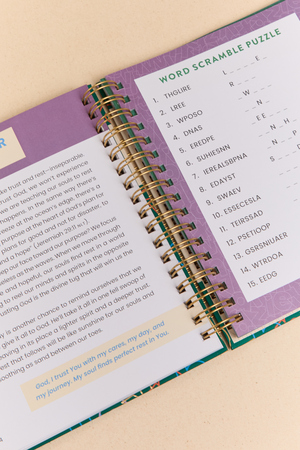 R
like trust and rest—inseparable.
trust God, we won't experience
we are teaching our souls to rest
happens. In the same way there's
breeze at the ocean's edge, there's a
purposes at the heart of God's plan for
plans for good and not for disaster, to
and a hope" (Jeremiah 29:11 NLT).
keep our face toward our purpose? We focus
When we move through
and hopeful, our souls find rest in a world
to reel our minds and spirits with the
trusting God is the divine tug that will win the
is another chance to remind ourselves that we
give it all to God. He'll take it all in one fell swoop of
leaving in its place a lighter spirit and a deeper trust.
rest that follows will be like sunshine for our souls and
soothing as sand between our toes.
God, I trust You with my cares, my day, and
my journey. My soul finds perfect rest in You.
WORD SCRAMBLE PUZZLE
1. THGURE
2. LREE
3. WPOSO
4. DNAS
5. EREDPE
6. SUHIESNN
7. IEREALSBPNA
8. EDAYST
9. SWAEV
10. ESSECESLA
11. TEIRSSAD
12. PSETIOOP
13. GSRSNIUAER
14. WTRDOA
15. EEDG